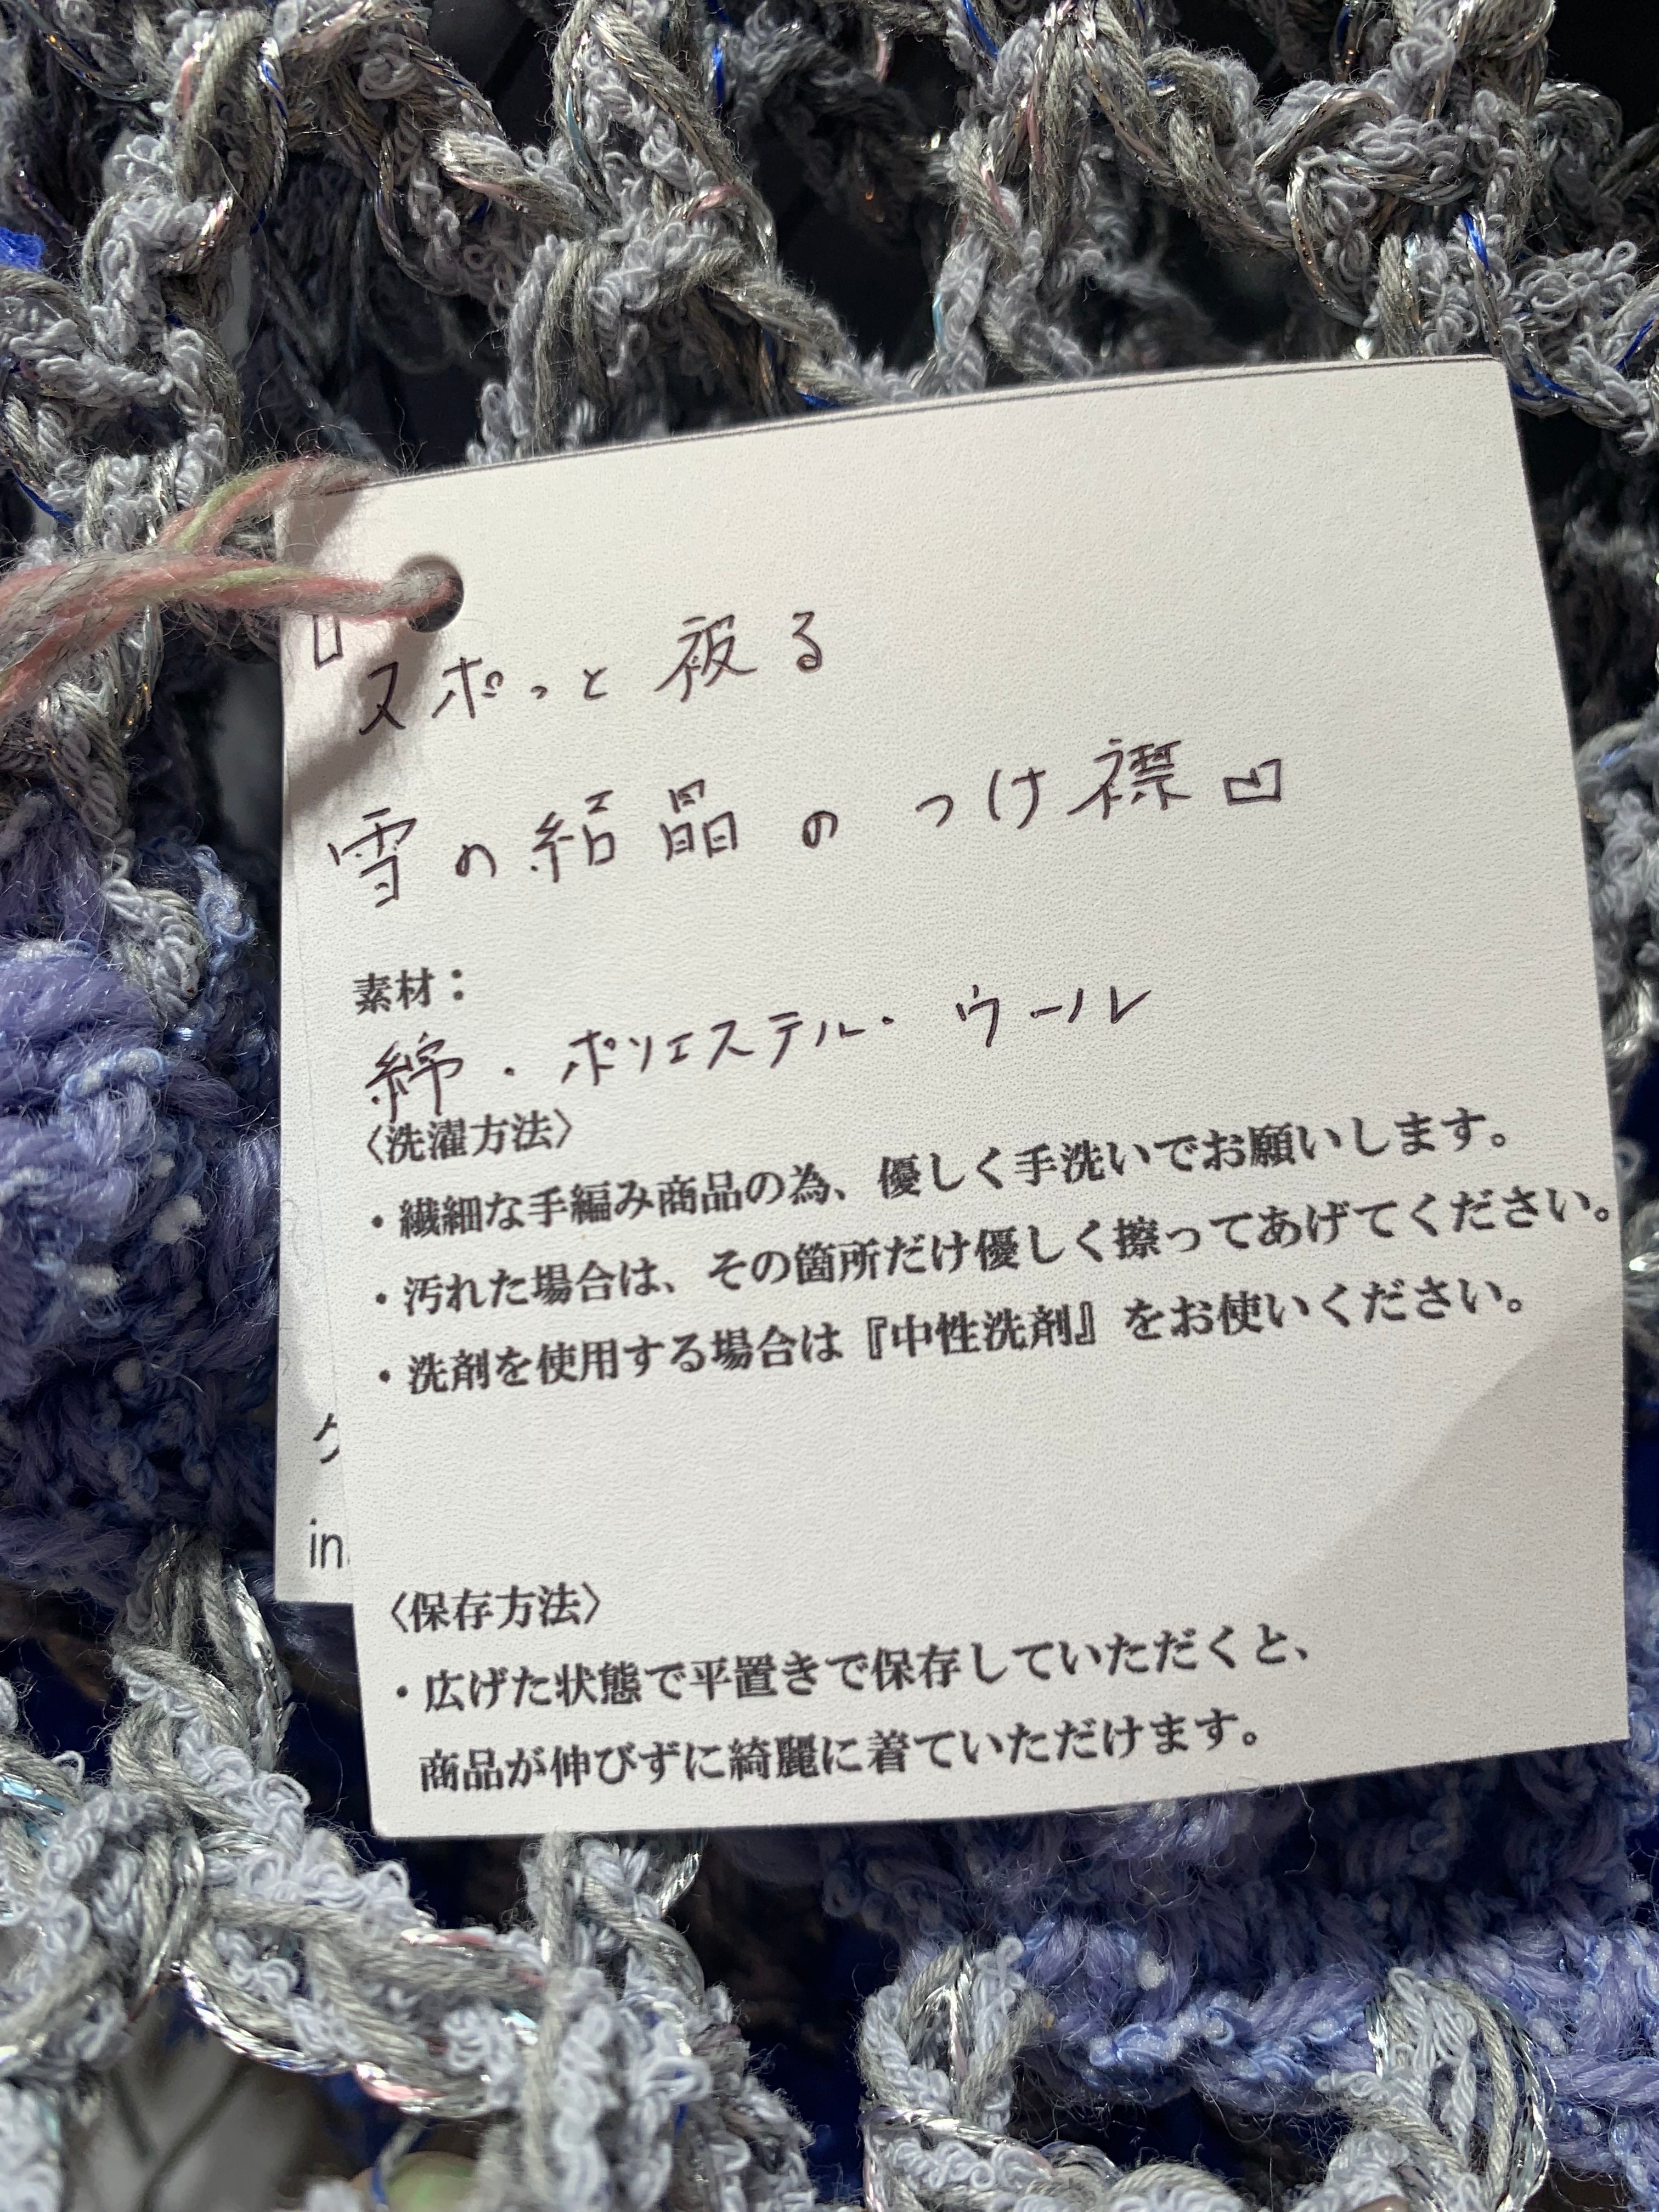 『スポっと被る
雪の結晶のつけ襟』
素材：
綿・ポリエステル・ウール
〈洗濯方法〉
・繊細な手編み商品の為、優しく手洗いでお願いします。
・汚れた場合は、その箇所だけ優しく擦ってあげてください。
・洗剤を使用する場合は『中性洗剤』をお使いください。
ク
in
〈保存方法〉
・広げた状態で平置きで保存していただくと、
商品が伸びずに綺麗に着ていただけます。